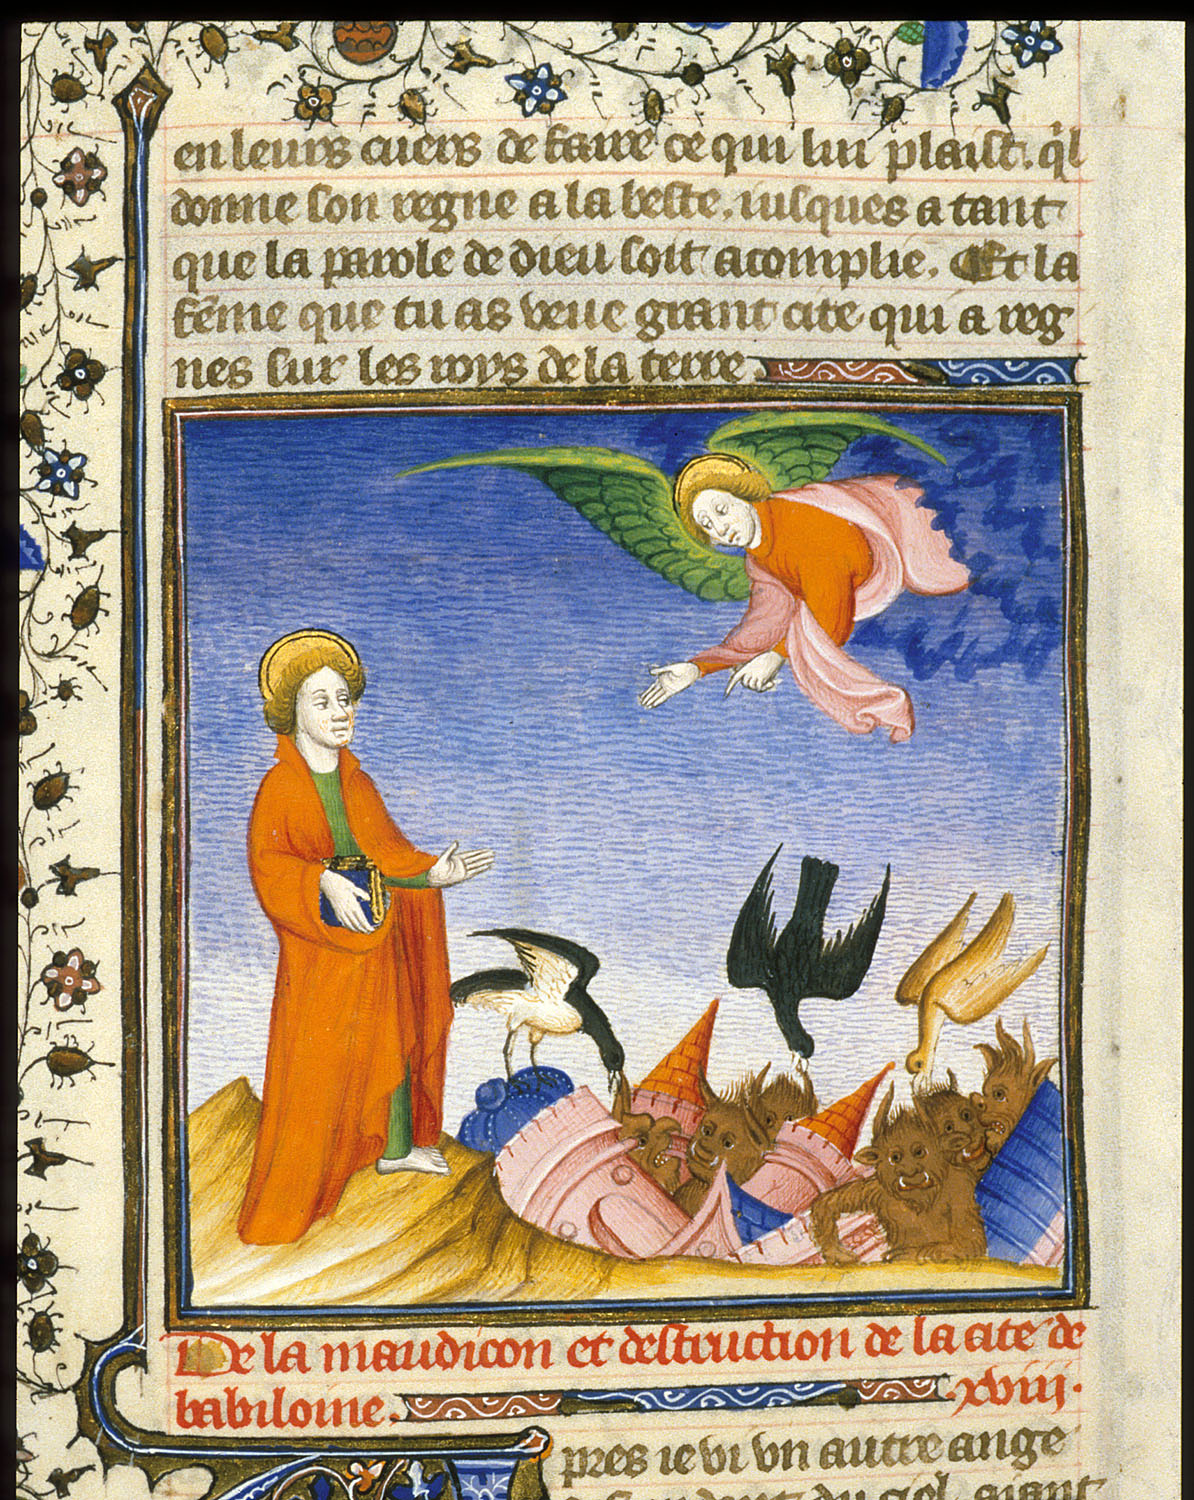 en leurs cuers de faire ce qui lui plaist. q̉l
donne son regne a la beste. iusques a tant
que la parole de dieu soit acomplie. Et la
fēme que tu as veue grant cite qui a reg
nes sur les roys de la terre
De la maudicon et destruction de la cite de
babiloine. xviij.
pres ie vi vn autre ange
du ciel. aiant